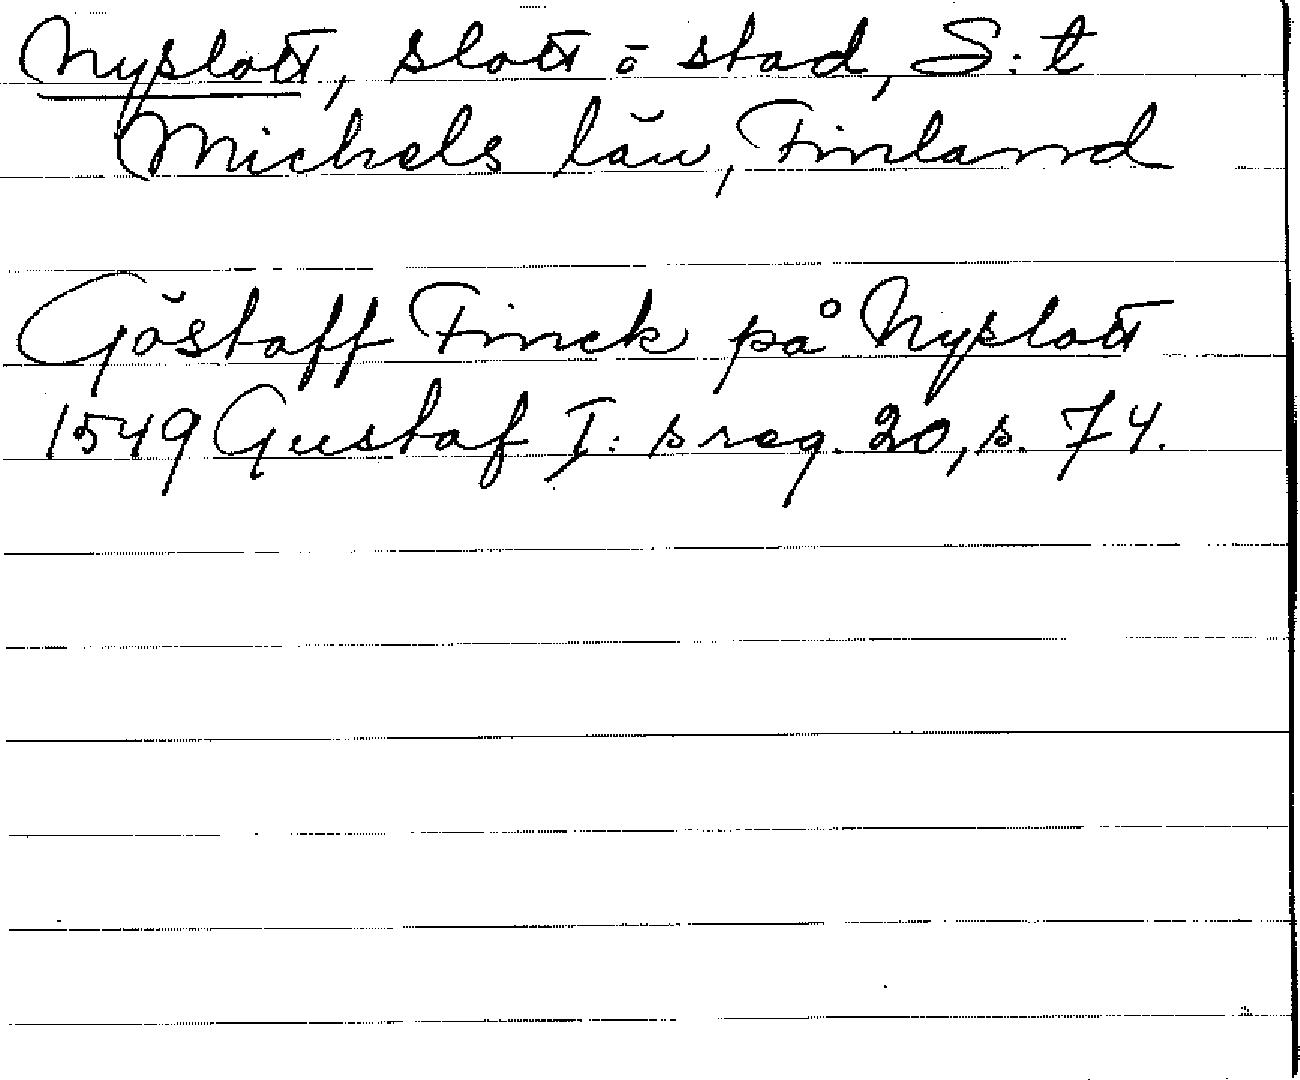 Nyslott, slott o stad, S:t
Michels län, Finland
Göstaff Finck på Nyslott
1549 Gustaf I:s reg. 20, s. 74.